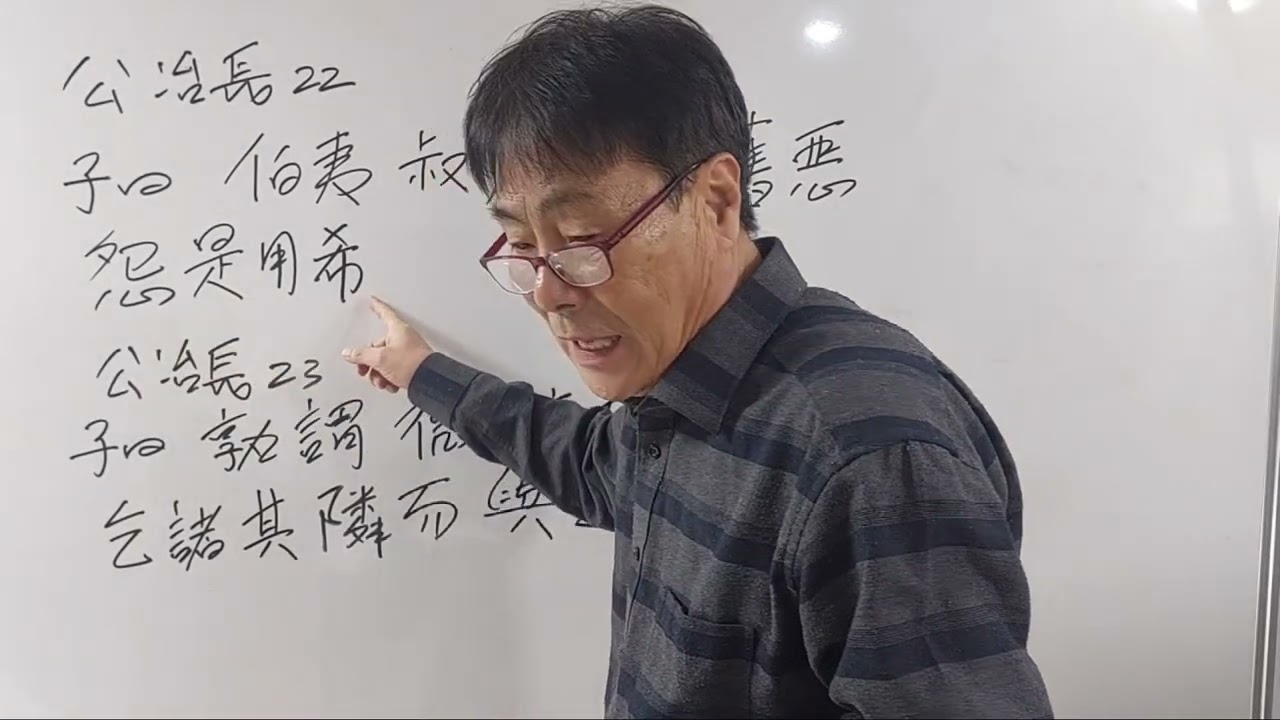 公冶長 22
子曰 伯夷 叔 舊惡
怨是用希
公冶長 23
子曰 孰謂 微
乞諸其隣而與